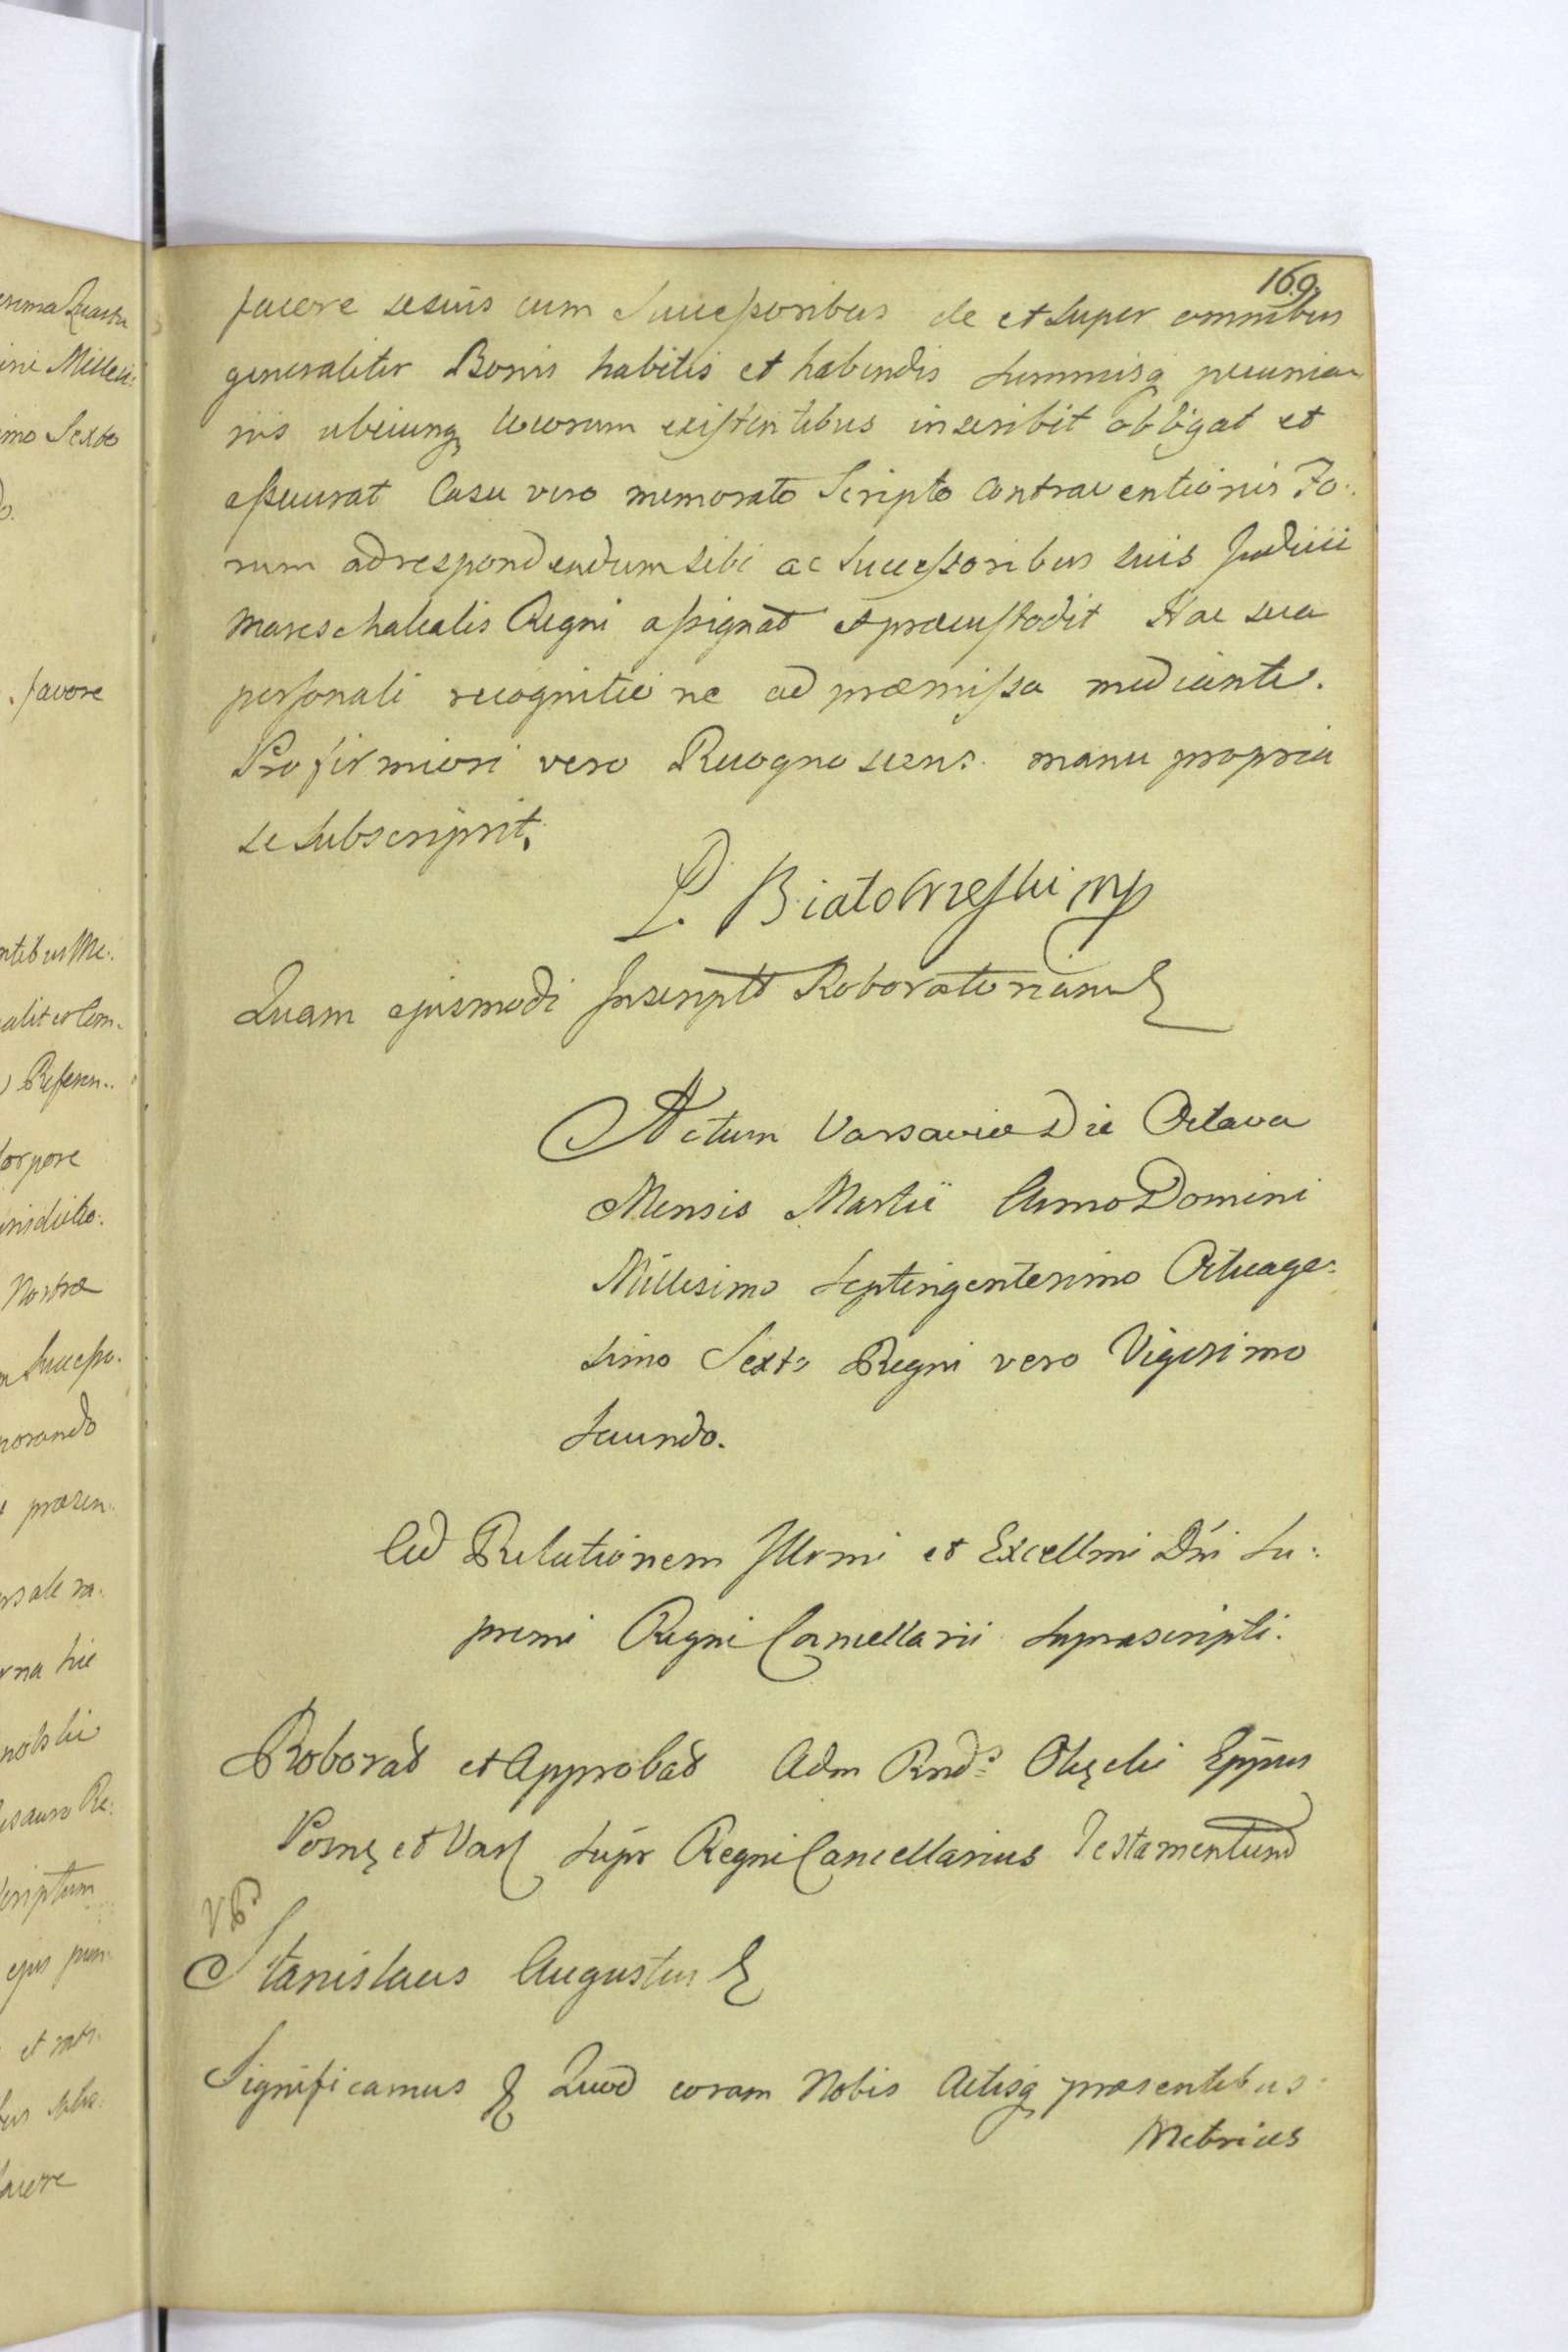 169.
facere sesuis cum Successoribus de et super omnibus
generaliter Bonis habitis et habendis Summisq pecunia-
riis ubicunq locorum existentibus inscribit obligat et
assecurat Casu vero memorato Scripto Contraventionis Fo:
rum ad respondendum sibi ac Successoribus suis Judicii
Mareschalcalis Regni assignat et præcustodit Hac sua
personali recognitione ad præmissa mediante.
Pro firmiori vero Recognoscens. manu propria
se subscripsit.
Quam ejusmodi Inscriptt Roboratoriam &
Actum Varsaviæ Die Octava
Mensis Martii Anno Domini
Millesimo Septingentesimo Octuage:
simo Sexto Regni vero Vigesimo
Secundo.
Ad Relationem Illrmi et Excellmi Dni Su:
premi Regni Cancellarii Suprascripti.
Roborat et Approbat Adm Rnd.s Eppus
Posn et Vars Supr Regni Cancellarius Testamentum
Stanislaus Augustus &
Significamus & Quod coram Nobis Actisq præsentibus
Metrices
esima Quarta
imo Sexto
favore
corpore
Nostræ
eriptum